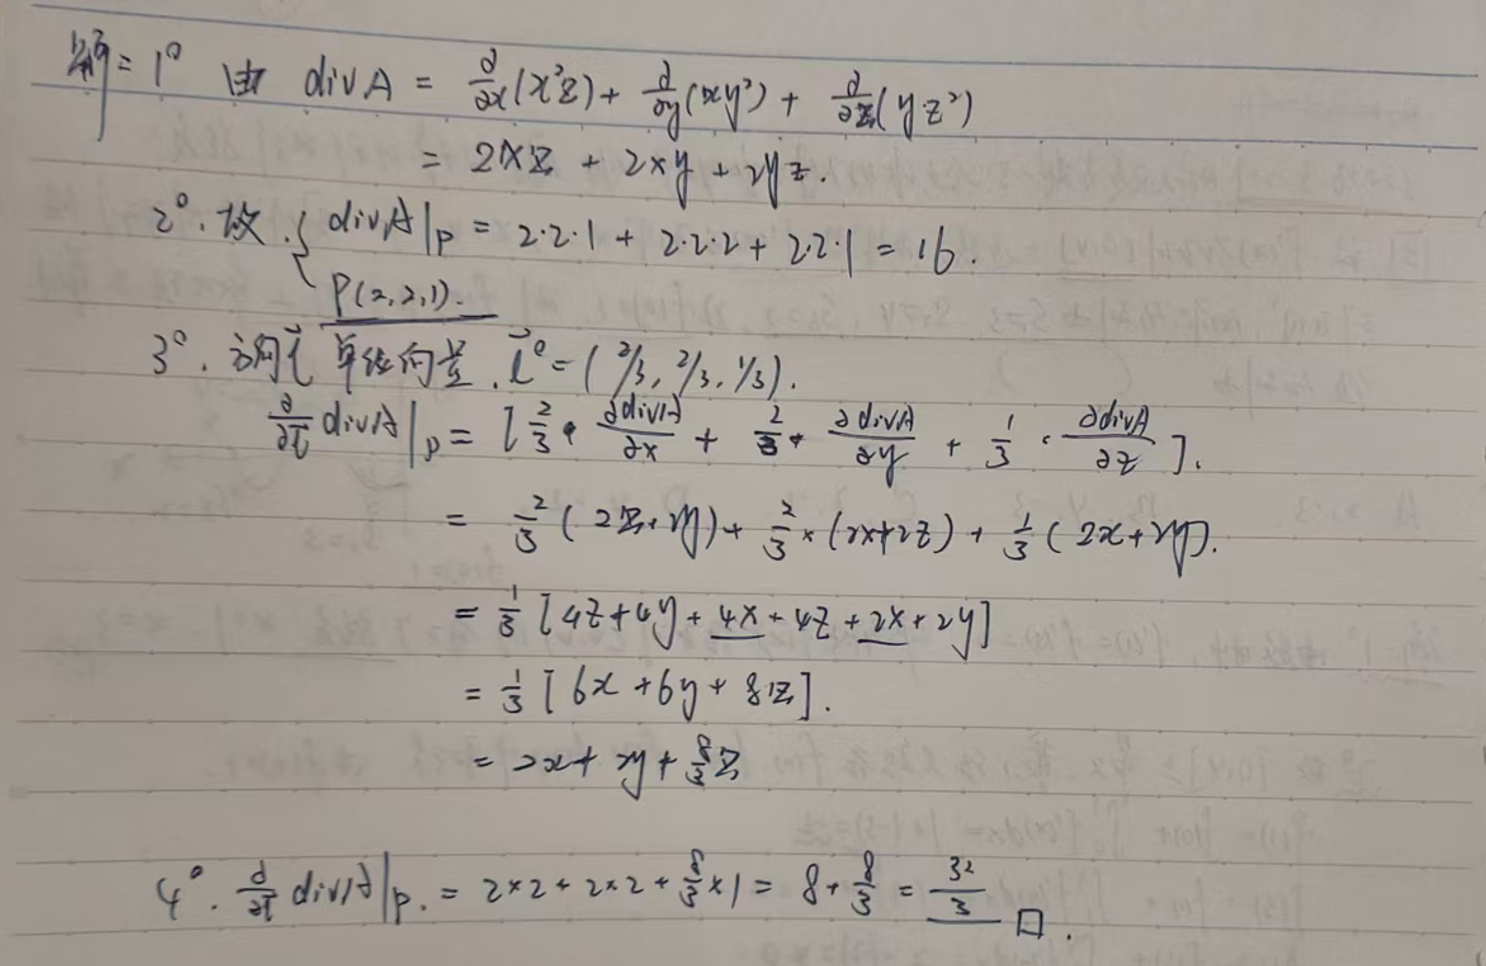 解: 1° 由 divA = ∂/∂x(x²z) + ∂/∂y(xy²) + ∂/∂z(yz²)
= 2xz + 2xy + 2yz.
2°. 故. { divA|p = 2·2·1 + 2·2·2 + 2·2·1 = 16.
P(2,2,1).
3°. 方向l 单位向量. l⁰ = (2/3, 2/3, 1/3).
∂/∂l divA|p = [2/3 · ∂divA/∂x + 2/3 · ∂divA/∂y + 1/3 · ∂divA/∂z].
= 2/3 (2z+2y) + 2/3 × (2x+2z) + 1/3 (2x+2y).
= 1/3 [4z+4y+4x+4z+2x+2y]
= 1/3 [6x+6y+8z].
= 2x+2y+8/3 z
4°. ∂/∂l divA|p. = 2×2+2×2+8/3×1 = 8+8/3 = 32/3 □.